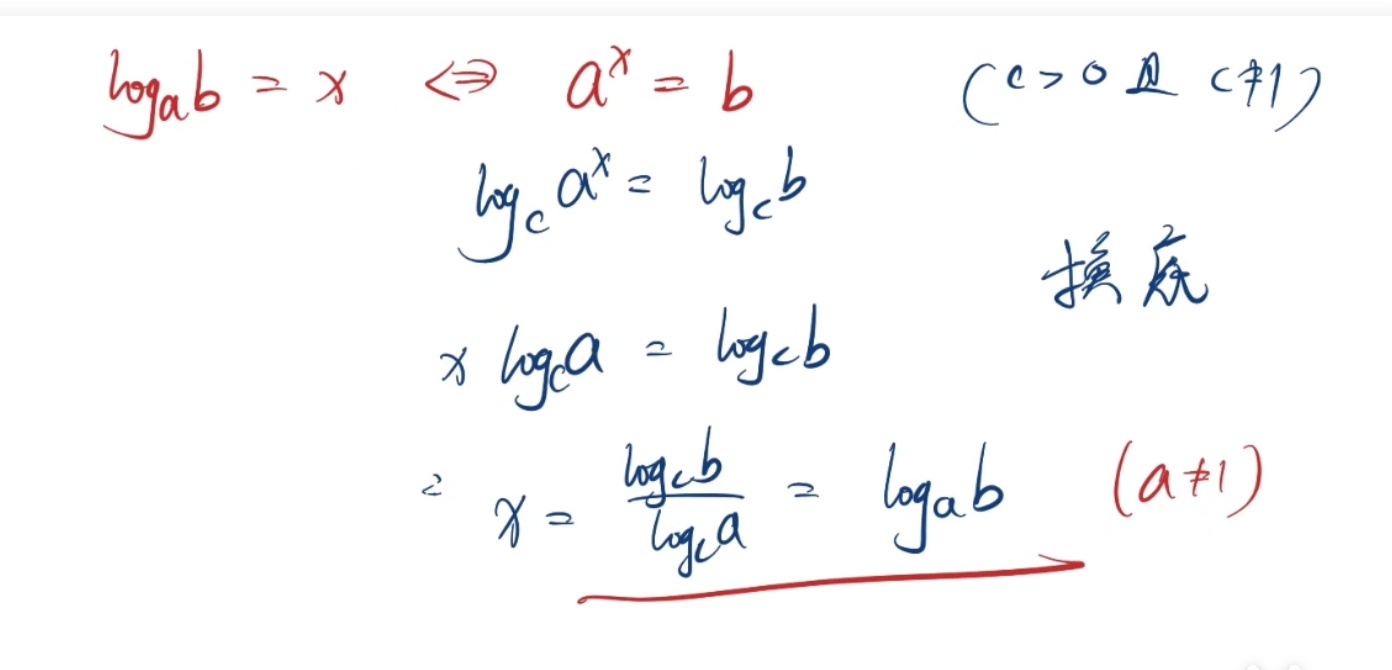 logₐb = x ⇔ aˣ = b (c > 0 且 c ≠ 1)
log_c aˣ = log_c b
换底
x log_c a = log_c b
∴ x = log_c b / log_c a = logₐb (a ≠ 1)